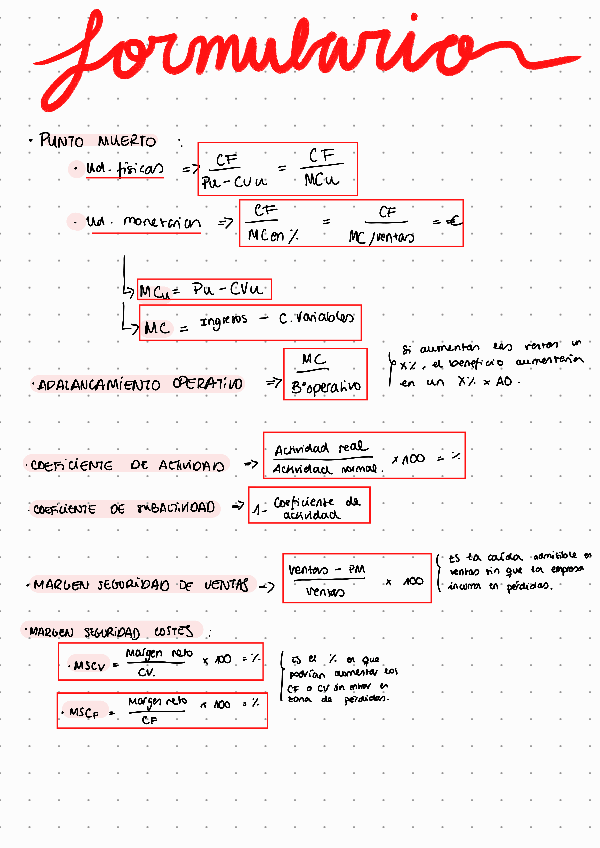 formulario
· PUNTO MUERTO :
· Ud. físicas => CF / Pu - CVu = CF / MCu
· Ud. monetarias => CF / MC en % = CF / MC/ventas = €
MCu = Pu - CVu
MC = Ingresos - C. Variables
· APALANCAMIENTO OPERATIVO => MC / Bº operativo
Si aumentan las ventas un
X%, el beneficio aumentaría
en un X% x AO.
· COEFICIENTE DE ACTIVIDAD -> Actividad real / Actividad normal. x 100 = %
· COEFICIENTE DE SUBACTIVIDAD -> 1 - Coeficiente de actividad
· MARGEN SEGURIDAD DE VENTAS -> ventas - PM / ventas x 100
Es la caída admisible en
ventas sin que la empresa
incurra en pérdidas.
· MARGEN SEGURIDAD COSTES :
· MSCV = Margen neto / CV. x 100 = %
· MSCF = Margen neto / CF x 100 = %
Es el % en que
podrían aumentar los
CF o CV sin entrar en
zona de pérdidas.